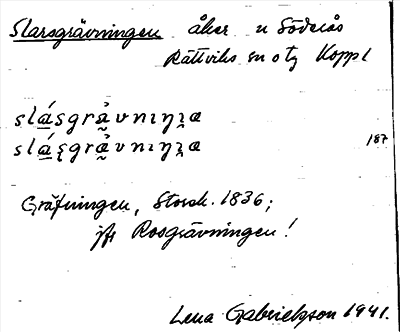 Slarsgrävningen åker n Söderås
Rättviks sn o tg Koppl
slásgrävniŋa
slásgrävniŋa
187
Gräfningen, Storsk. 1836;
jfr Rosgrävningen!
Lena Gabrielsson 1941.